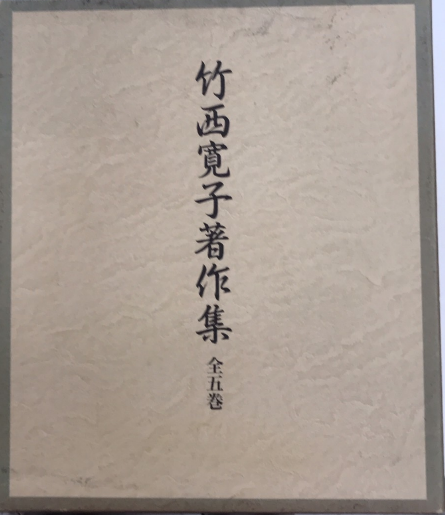 竹西寛子著作集 全五巻